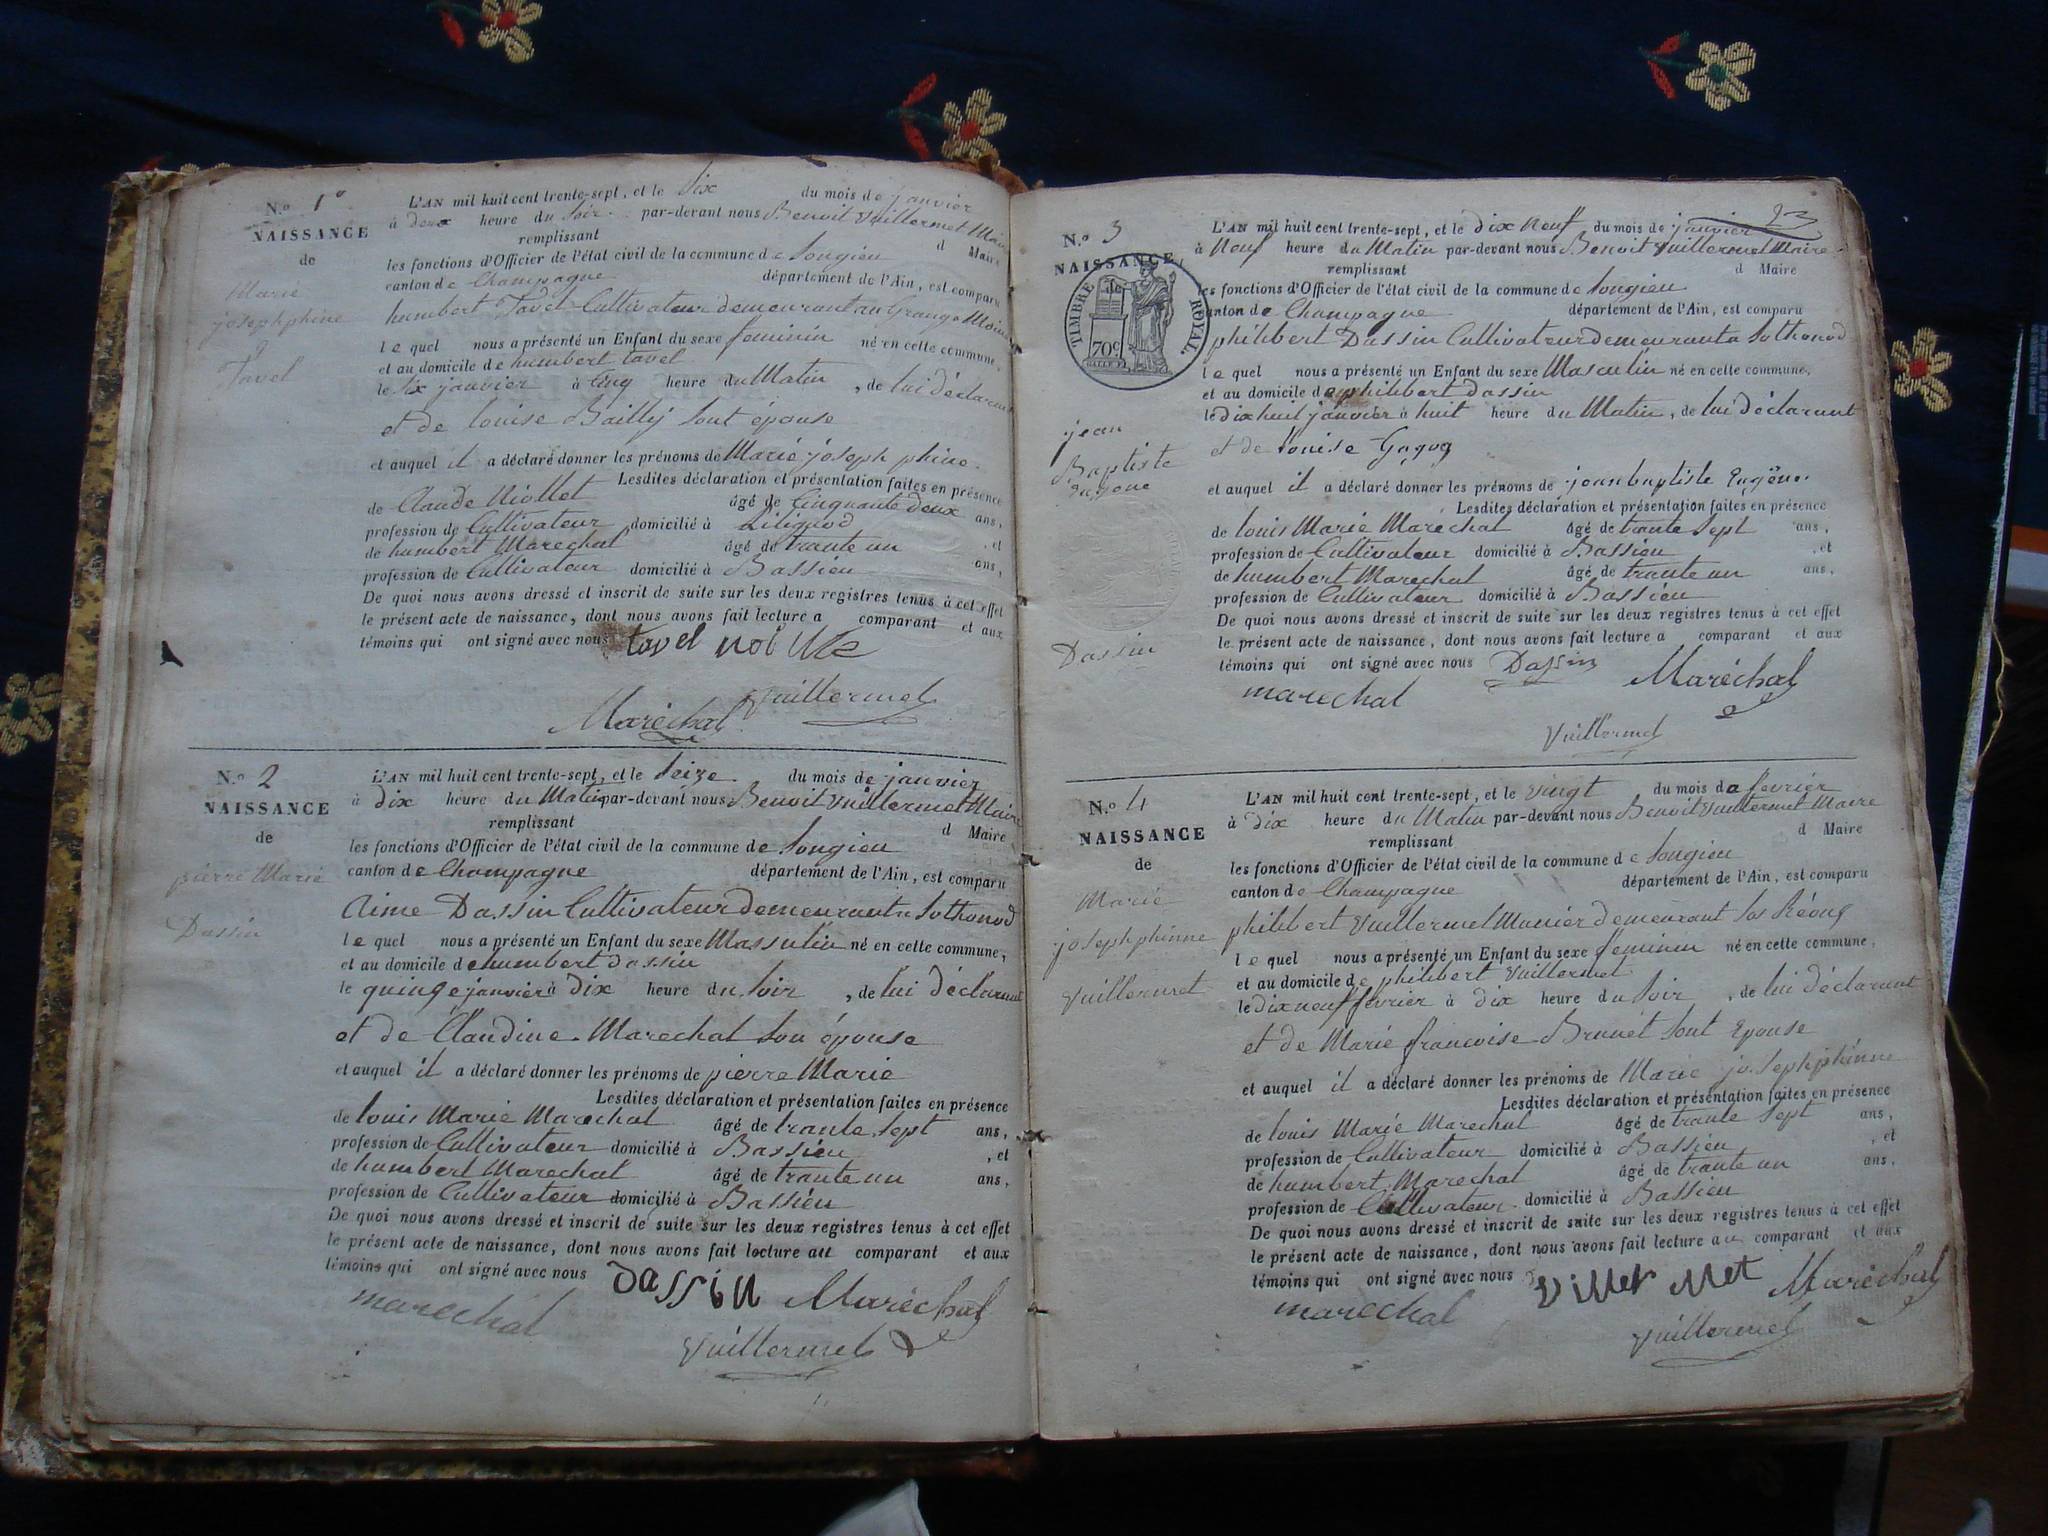 N.º 1º
NAISSANCE
de
Marie
josephphine
Tavel
L'AN mil huit cent trente-sept, et le six du mois de janvier
à deux heure du soir par-devant nous Benoit Vuillermet Maire
remplissant d Maire
les fonctions d'Officier de l'état civil de la commune de Songieu
canton de Champagne département de l'Ain, est comparu
humbert Tavel Cultivateur demeurant au Grange
le quel nous a présenté un Enfant du sexe feminin né en cette commune,
et au domicile de humbert tavel
le six janvier à Cinq heure du Matin, de lui déclarant
et de louise Bailly sont épouse
et auquel il a déclaré donner les prénoms de Marie joseph phine
Lesdites déclaration et présentation faites en présence
de Claude Niollet âgé de Cinquante deux ans,
profession de Cultivateur domicilié à Lilignod, et
de humbert Marechal âgé de trante un ans,
profession de Cultivateur domicilié à Bassieu
De quoi nous avons dressé et inscrit de suite sur les deux registres tenus à cet effet
le présent acte de naissance, dont nous avons fait lecture a comparant et aux
témoins qui ont signé avec nous tavel
Maréchal Vuillermet
N.º 2
NAISSANCE
de
pierre Marie
Dassin
L'AN mil huit cent trente-sept, et le seize du mois de janvier
à dix heure du Matin par-devant nous Benoit Vuillermet Maire
remplissant d Maire
les fonctions d'Officier de l'état civil de la commune de Songieu
canton de Champagne département de l'Ain, est comparu
Aime Dassin Cultivateur demeurant a Sothonod
le quel nous a présenté un Enfant du sexe Massulin né en cette commune,
et au domicile de humbert dassin
le quinze janvier à dix heure du soir, de lui déclarant
et de Claudine Marechal son épouse
et auquel il a déclaré donner les prénoms de pierre Marie
Lesdites déclaration et présentation faites en présence
de louis Marie Marechal âgé de trante sept ans,
profession de Cultivateur domicilié à Bassieu, et
de humbert Marechal âgé de trante un ans,
profession de Cultivateur domicilié à Bassieu
De quoi nous avons dressé et inscrit de suite sur les deux registres tenus à cet effet
le présent acte de naissance, dont nous avons fait lecture au comparant et aux
témoins qui ont signé avec nous dassin Maréchal
marechal
Vuillermet
23
N.º 3
NAISSANCE
de
TIMBRE ROYAL
70 c
jean
Baptiste
Dassin
L'AN mil huit cent trente-sept, et le dix neuf du mois de janvier
à Neuf heure du Matin par-devant nous Benoit Vuillermet Maire
remplissant d Maire
les fonctions d'Officier de l'état civil de la commune de Songieu
canton de Champagne département de l'Ain, est comparu
philibert Dassin Cultivateur demeurant a Sothonod
le quel nous a présenté un Enfant du sexe Masculin né en cette commune,
et au domicile de philibert dassin
le dix huit janvier à huit heure du Matin, de lui déclarant
et de louise
et auquel il a déclaré donner les prénoms de jean baptiste
Lesdites déclaration et présentation faites en présence
de louis Marie Marechal âgé de trante sept ans,
profession de Cultivateur domicilié à Bassieu, et
de humbert Marechal âgé de trante un ans,
profession de Cultivateur domicilié à Bassieu
De quoi nous avons dressé et inscrit de suite sur les deux registres tenus à cet effet
le présent acte de naissance, dont nous avons fait lecture a comparant et aux
témoins qui ont signé avec nous Dassin Maréchal
marechal
Vuillermet
N.º 4
NAISSANCE
de
Marie
josephphinne
Vuillermet
L'AN mil huit cent trente-sept, et le vingt du mois de fevrier
à dix heure du Matin par-devant nous Benoit Vuillermet Maire
remplissant d Maire
les fonctions d'Officier de l'état civil de la commune de Songieu
canton de Champagne département de l'Ain, est comparu
philibert Vuillermet demeurant
le quel nous a présenté un Enfant du sexe feminin né en cette commune,
et au domicile de philibert Vuillermet
le dix neuf fevrier à dix heure du soir, de lui déclarant
et de Marie francoise Brunet sont Epouse
et auquel il a déclaré donner les prénoms de Marie josephphinne
Lesdites déclaration et présentation faites en présence
de louis Marie Marechal âgé de trante sept ans,
profession de Cultivateur domicilié à Bassieu, et
de humbert Marechal âgé de trante un ans,
profession de Cultivateur domicilié à Bassieu
De quoi nous avons dressé et inscrit de suite sur les deux registres tenus à cet effet
le présent acte de naissance, dont nous avons fait lecture au comparant et aux
témoins qui ont signé avec nous Viller Met Maréchal
marechal
Vuillermet